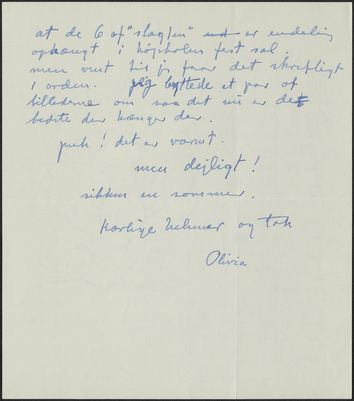 at de 6 af "slagsen" er endelig
ophængt i højskolens fest sal.
men vent til jeg faar det skriftligt
i orden. jeg byttede et par af
billederne om saa det nu er det
bedste der hænger der.
puh! det er varmt.
men dejligt!
sikken en sommer.
Kærlige hilsner og tak
Olivia